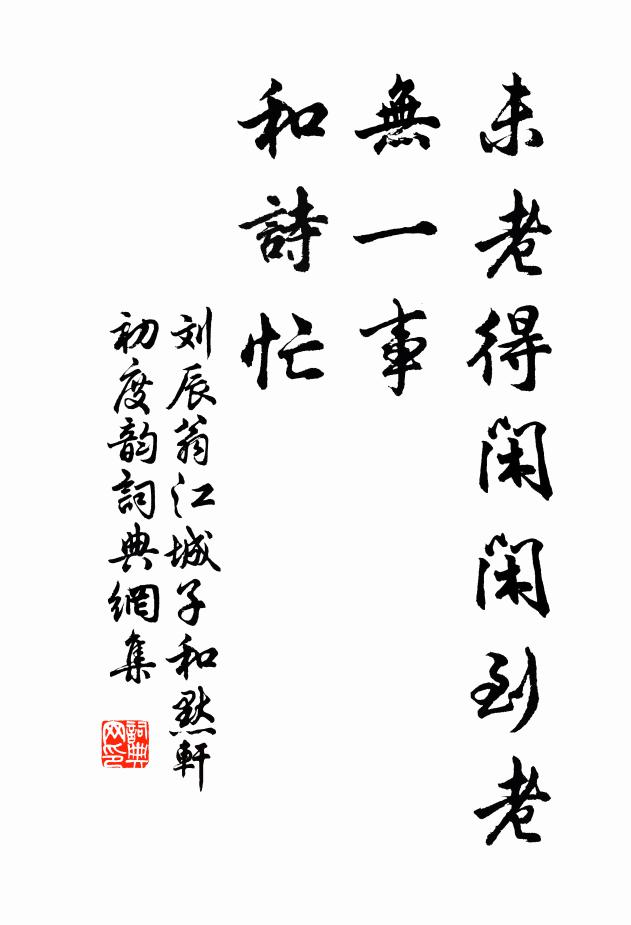 未老得閑閑到老
無一事
和詩忙
刘辰翁江城子和默軒
初度韵詞典網集
詞典
网印